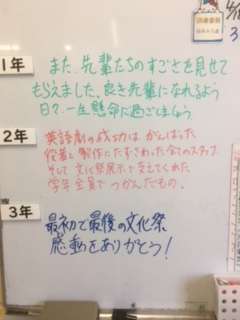 1年
また、先輩たちのすごさを見せて
もらえました。良き先輩になれるよう
日々一生懸命に過ごしましょう
2年
英語劇の成功は、がんばった
役者と製作にたずさわった全てのスタッフ、
そして文化祭展示で支えてくれた
学年全員でつかんだもの。
3年
最初で最後の文化祭
感動をありがとう!